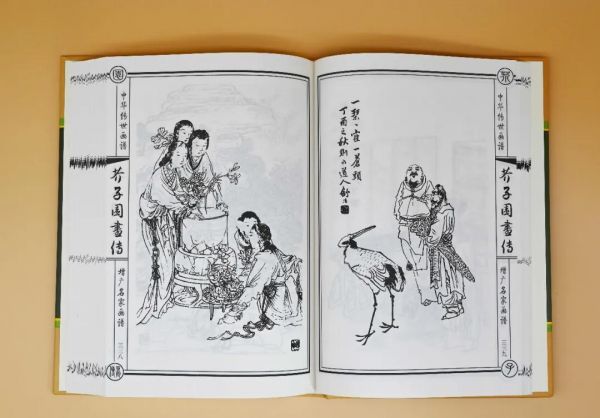 中华传世画谱
芥子园畫传
增广名家画谱
三二八
一琴一隺一蒼頭
丁酉之秋
道人
中华传世画谱
芥子园畫传
增广名家画谱
三二九